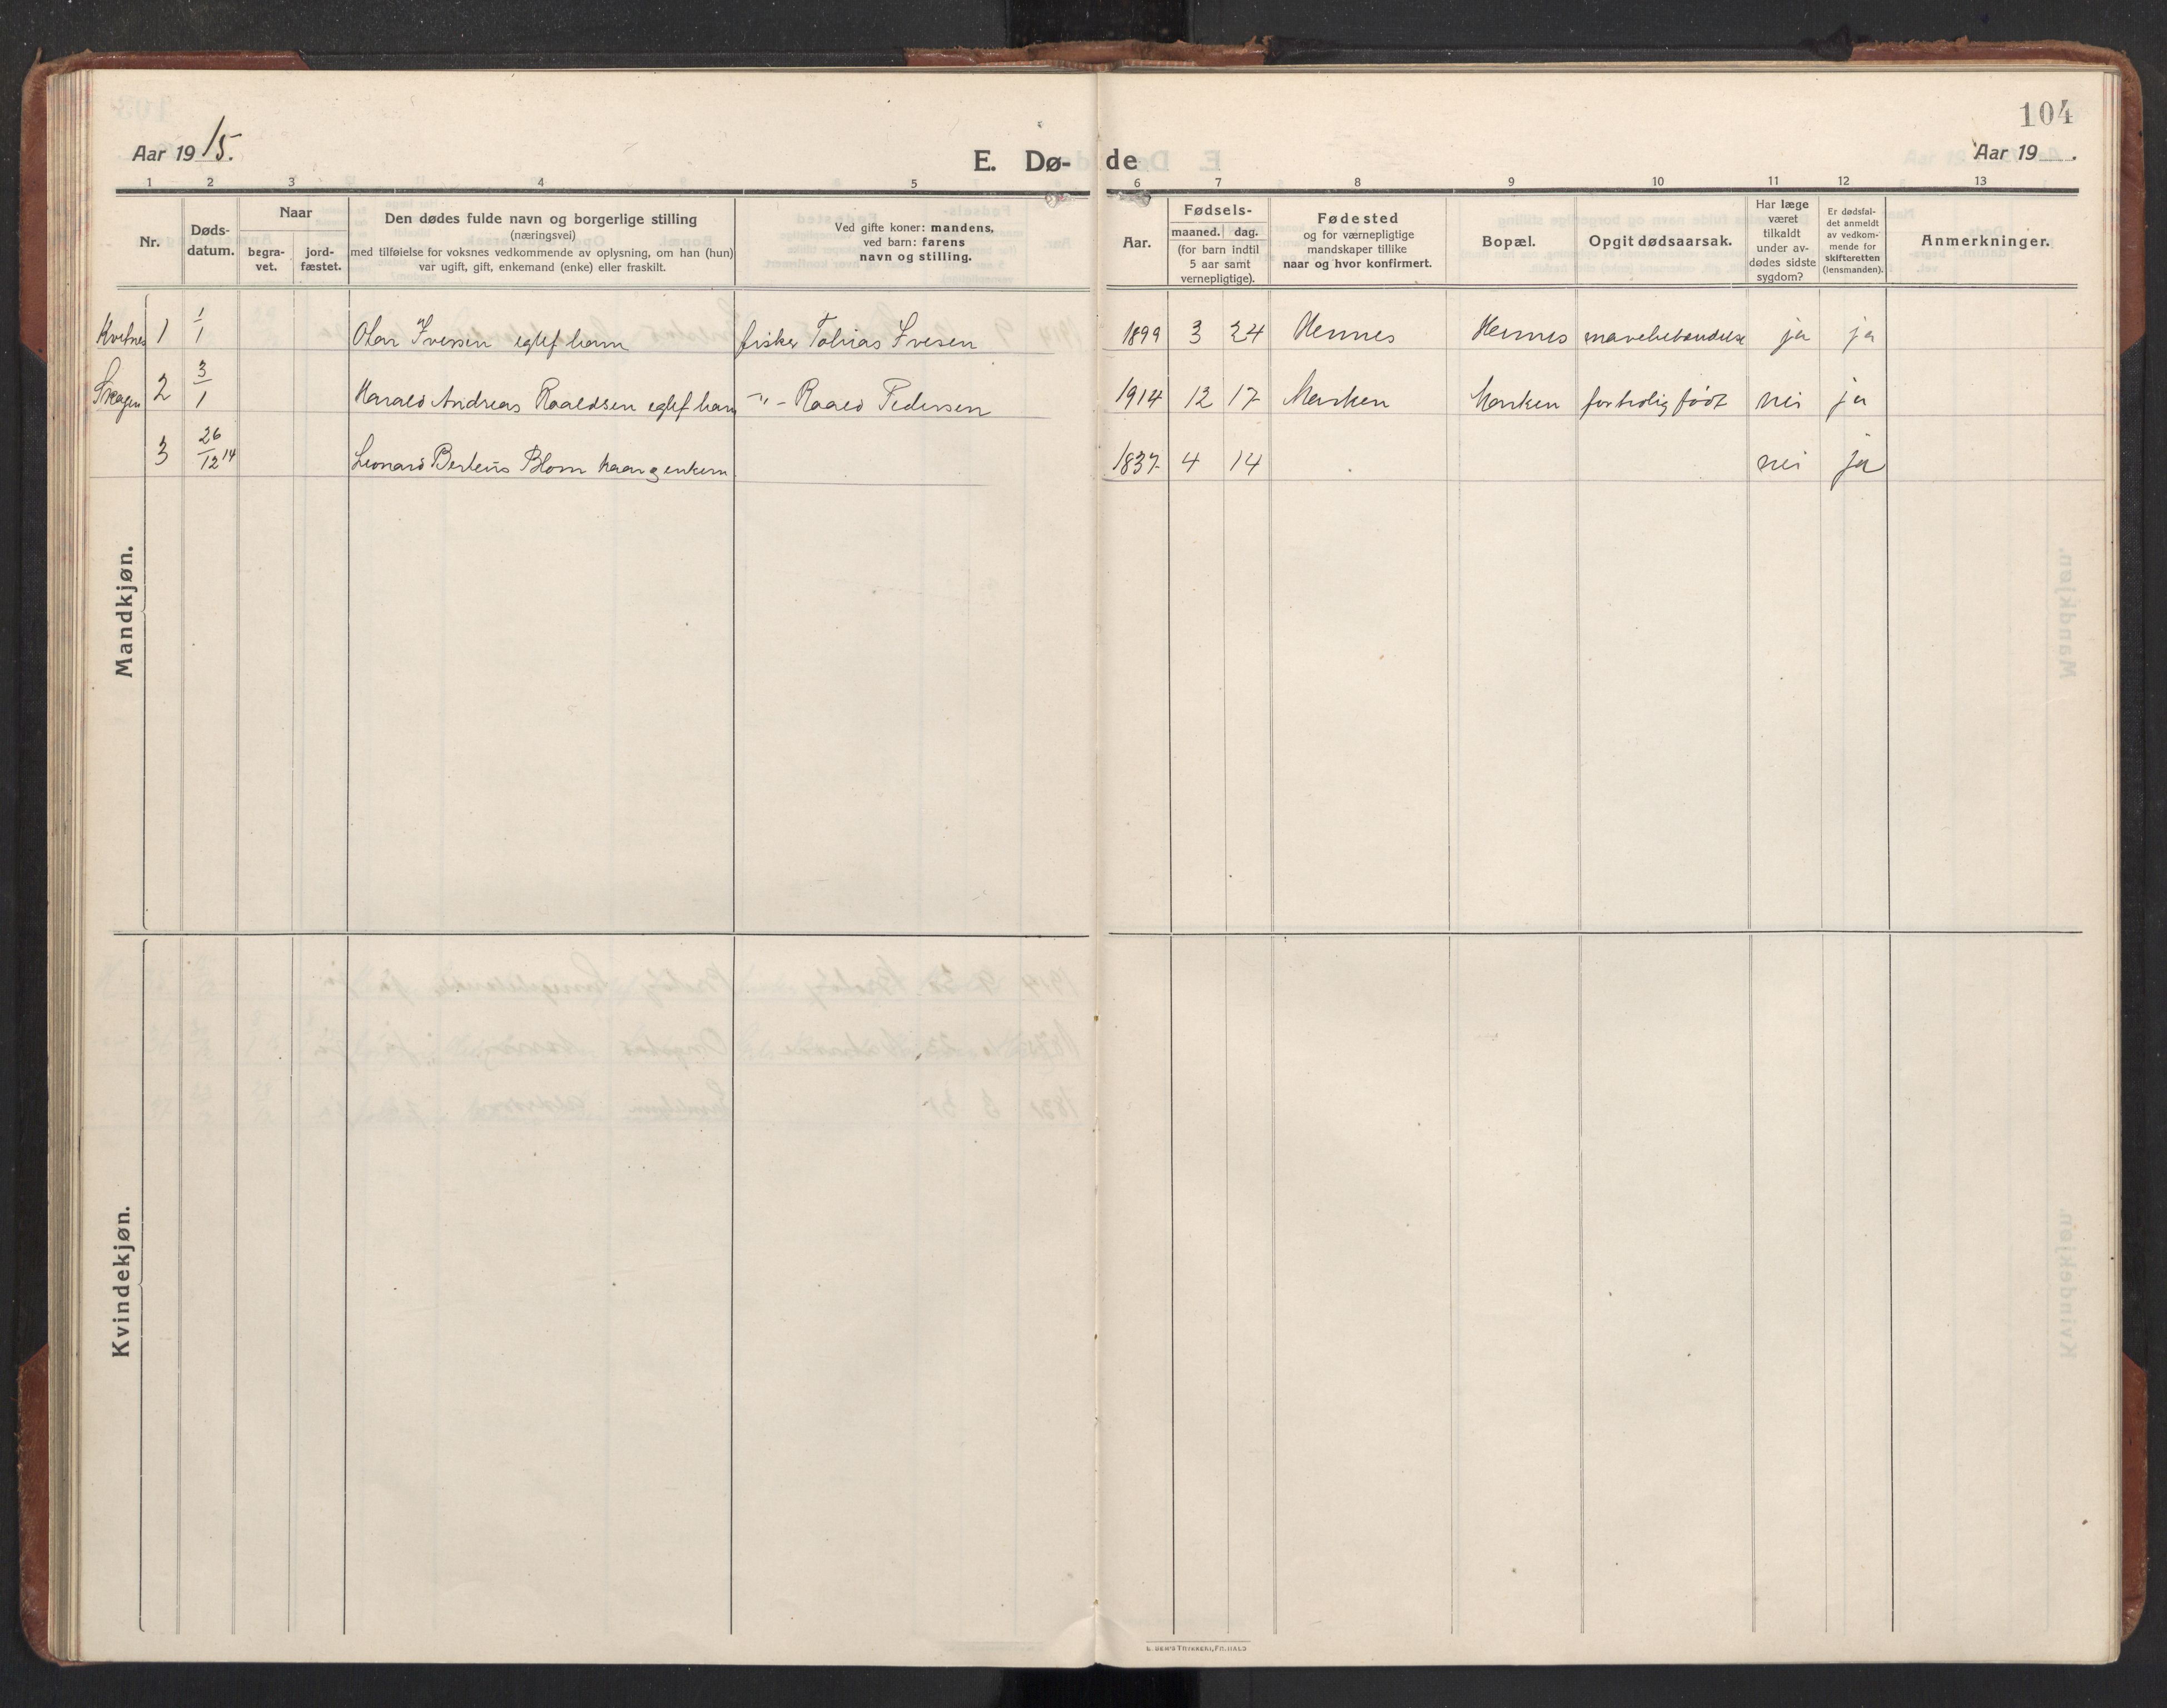 104
Aar 1915.
E. Dø-de
Aar 19 .
1 2 3 4 5 6 7 8 9 10 11 12 13
Nr.
Døds-
datum.
Naar
begra-
vet.
jord-
fæstet.
Den dødes fulde navn og borgerlige stilling
(næringsvei)
med tilføielse for voksnes vedkommende av oplysning, om han (hun)
var ugift, gift, enkemand (enke) eller fraskilt.
Ved gifte koner: mandens,
ved barn: farens
navn og stilling.
Aar.
Fødsels-
maaned. dag.
(for barn indtil
5 aar samt
vernepligtige).
Fødested
og for værnepligtige
mandskaper tillike
naar og hvor konfirmert.
Bopæl.
Opgit dødsaarsak.
Har læge
været
tilkaldt
under av-
dødes sidste
sygdom?
Er dødsfal-
det anmeldt
av vedkom-
mende for
skifteretten
(lensmanden).
Anmerkninger.
1 1/1 Iversen fisker Tobias Ivesen 1899 3 24 Hennes Hennes ja ja
2 3/1 Harald Andreas Roaldsen -"- Roald Pedersen 1914 12 17 født nei ja
3 26/12 14 Leonard Blom 1837 4 14 nei ja
Mandkjøn.
Kvindekjøn.